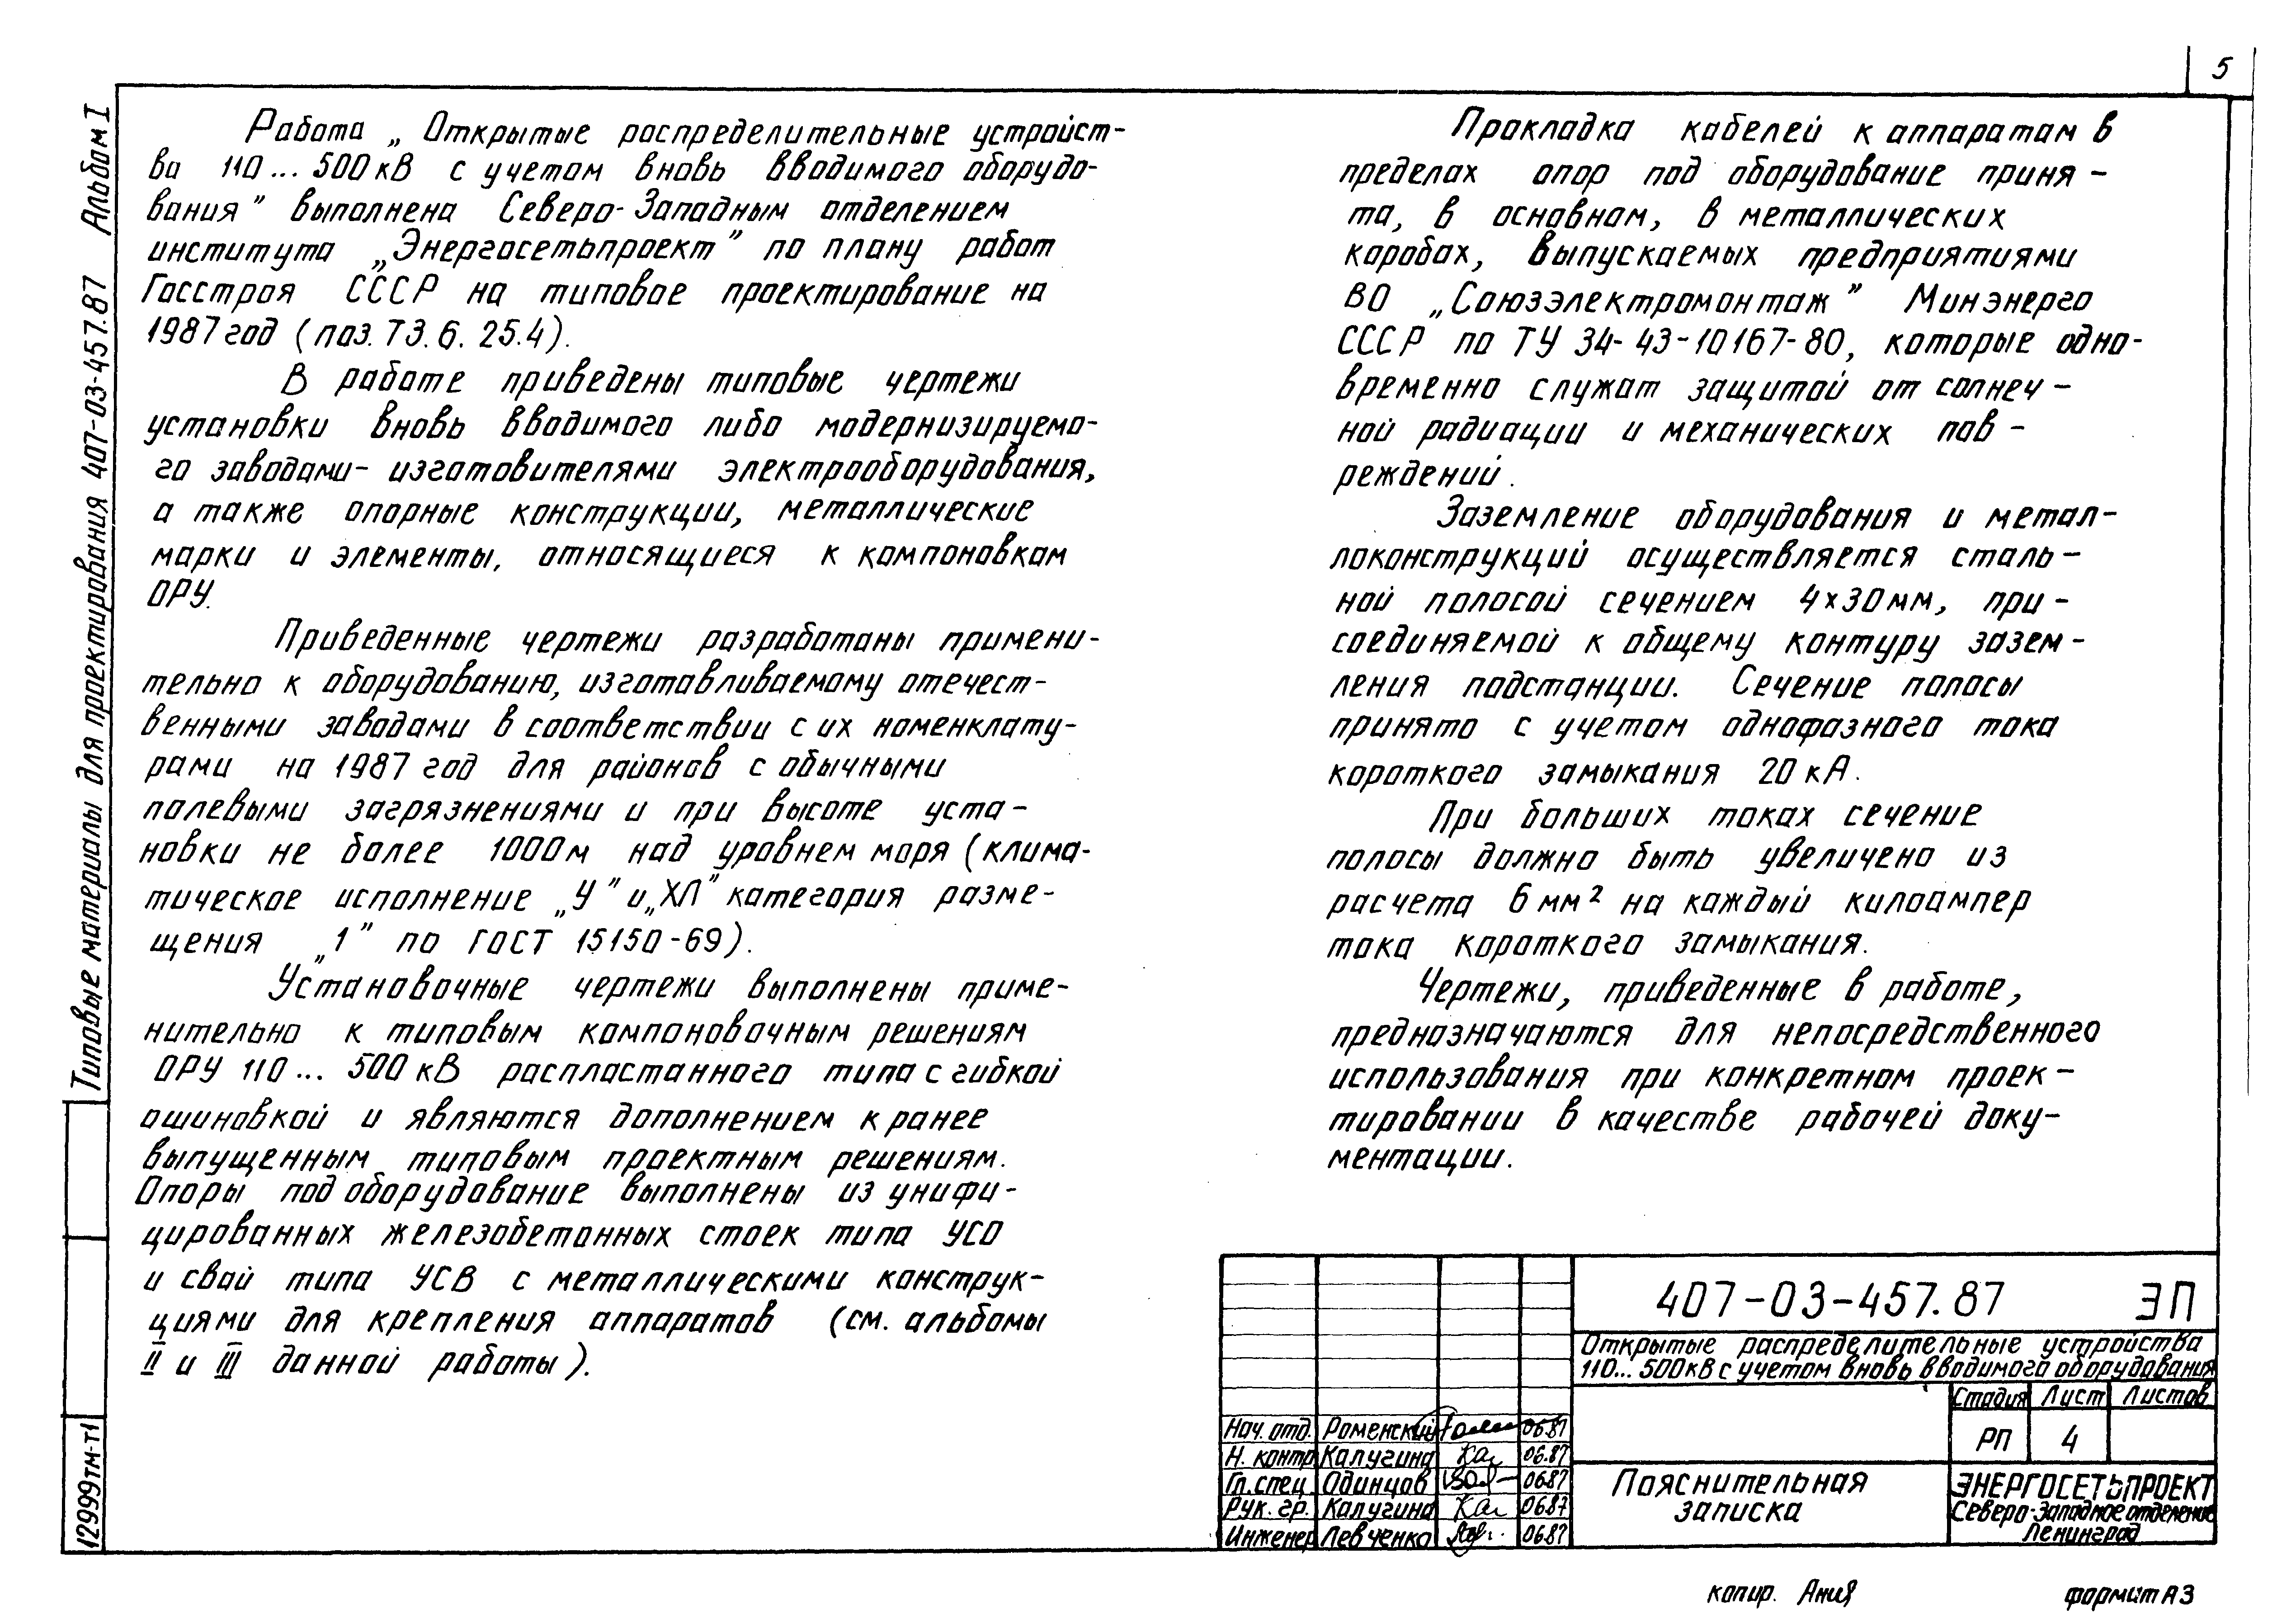 5
Типовые материалы для проектирования 407-03-457.87 Альбом I
Работа „Открытые распределительные устройст-
ва 110... 500кВ с учетом вновь вводимого оборудо-
вания” выполнена Северо-Западным отделением
института „Энергосетьпроект” по плану работ
Госстроя СССР на типовое проектирование на
1987 год (поз. Т3.6.25.4).
В работе приведены типовые чертежи
установки вновь вводимого либо модернизируемо-
го заводами-изготовителями электрооборудования,
а также опорные конструкции, металлические
марки и элементы, относящиеся к компоновкам
ОРУ.
Приведенные чертежи разработаны примени-
тельно к оборудованию, изготавливаемому отечест-
венными заводами в соответствии с их номенклату-
рами на 1987 год для районов с обычными
полевыми загрязнениями и при высоте уста-
новки не более 1000м над уровнем моря (клима-
тическое исполнение „У” и „ХЛ” категория разме-
щения „1” по ГОСТ 15150-69).
Установочные чертежи выполнены приме-
нительно к типовым компоновочным решениям
ОРУ 110... 500кВ распластанного типа с гибкой
ошиновкой и являются дополнением к ранее
выпущенным типовым проектным решениям.
Опоры под оборудование выполнены из унифи-
цированных железобетонных стоек типа УСО
и свай типа УСВ с металлическими конструк-
циями для крепления аппаратов (см. альбомы
II и III данной работы).
Прокладка кабелей к аппаратам в
пределах опор под оборудование приня-
та, в основном, в металлических
коробах, выпускаемых предприятиями
ВО „Союзэлектромонтаж” Минэнерго
СССР по ТУ 34-43-10167-80, которые одно-
временно служат защитой от солнеч-
ной радиации и механических пов-
реждений.
Заземление оборудования и метал-
локонструкций осуществляется сталь-
ной полосой сечением 4×30мм, при-
соединяемой к общему контуру зазем-
ления подстанции. Сечение полосы
принято с учетом однофазного тока
короткого замыкания 20кА.
При больших токах сечение
полосы должно быть увеличено из
расчета 6мм² на каждый килоампер
тока короткого замыкания.
Чертежи, приведенные в работе,
предназначаются для непосредственного
использования при конкретном проек-
тировании в качестве рабочей доку-
ментации.
407-03-457.87 ЭП
Открытые распределительные устройства
110... 500кВ с учетом вновь вводимого оборудования
Стадия Лист Листов
РП 4
Нач. отд. Роменский 06.87
Н. контр Калугина 06.87
Гл. спец. Одинцов 06.87
Рук. гр. Калугина 06.87
Инженер Левченко 06.87
Пояснительная
записка
ЭНЕРГОСЕТЬПРОЕКТ
Северо-Западное отделение
Ленинград
12999тм-т1
копир. Ания
формат А3